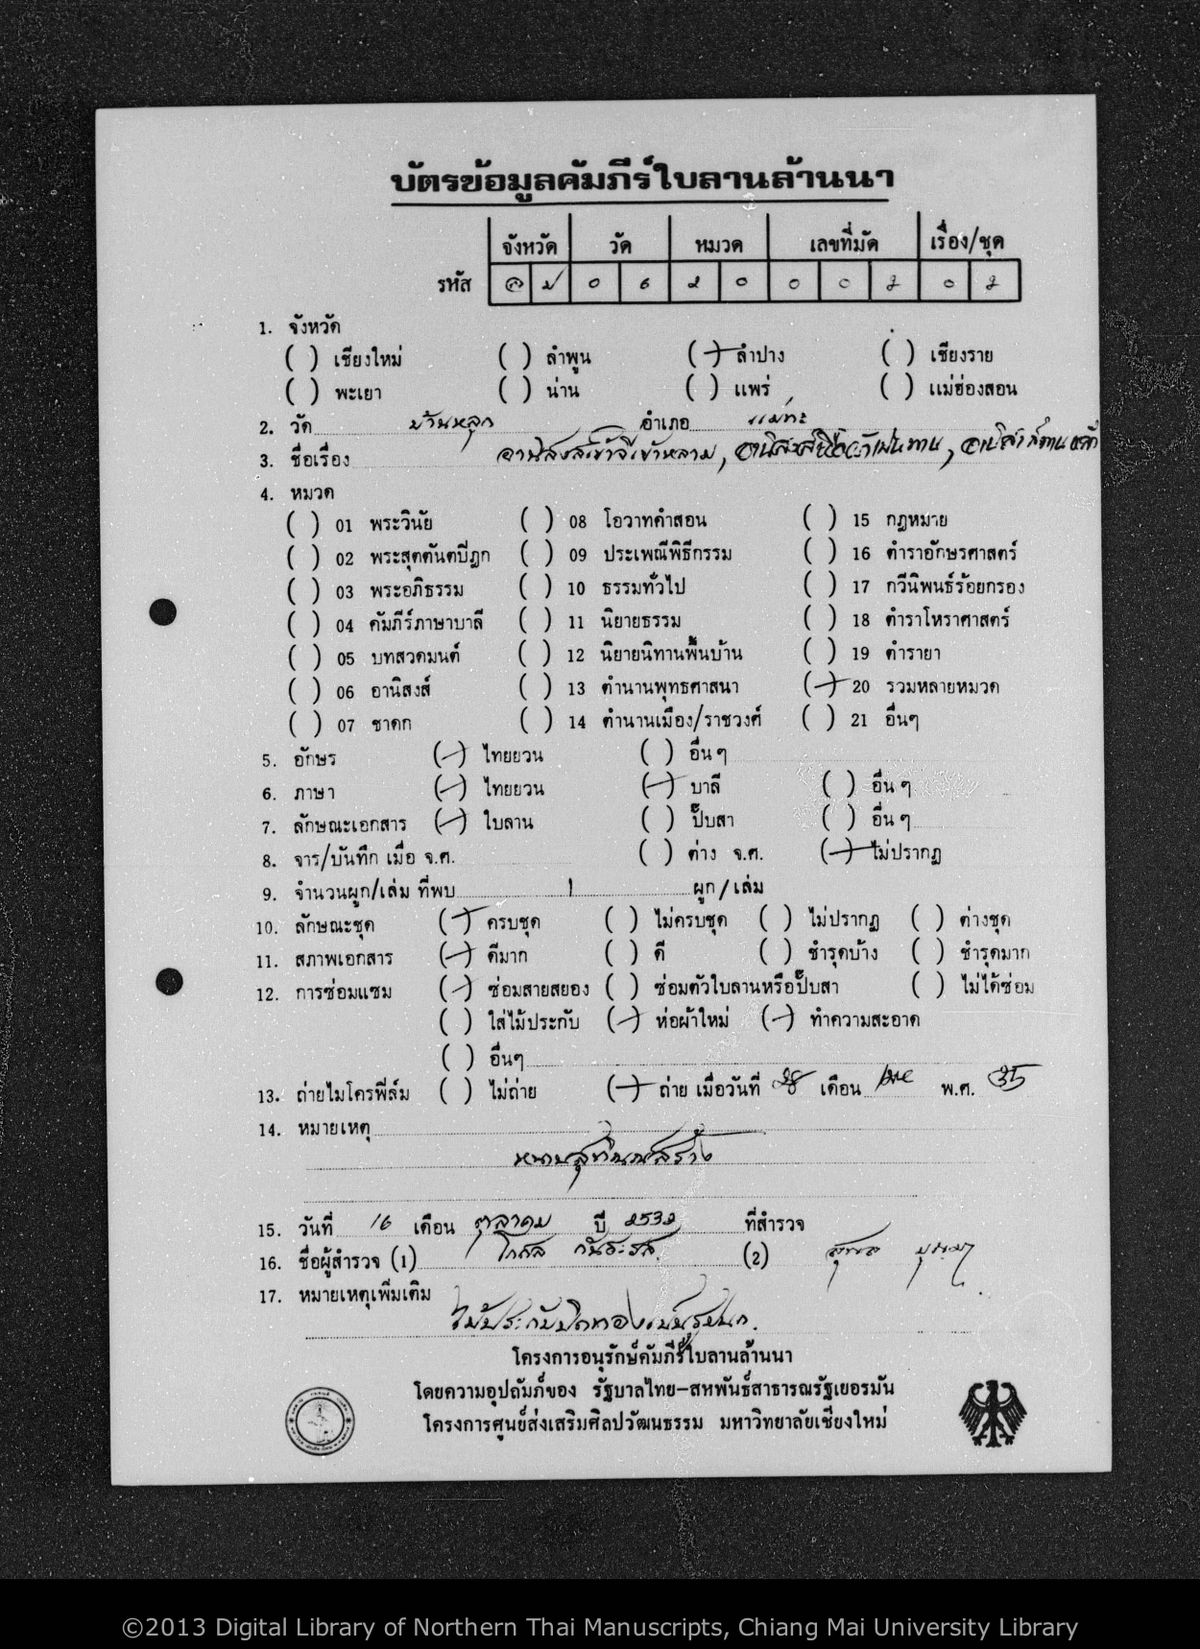 บัตรข้อมูลคัมภีร์ใบลานล้านนา
จังหวัด วัด หมวด เลขที่มัด เรื่อง/ชุด
รหัส ลป 0 6 2 0 0 0 2 0 2
1. จังหวัด
( ) เชียงใหม่ ( ) ลำพูน (/) ลำปาง ( ) เชียงราย
( ) พะเยา ( ) น่าน ( ) แพร่ ( ) แม่ฮ่องสอน
2. วัด บ้านหลุก อำเภอ แม่ทะ
3. ชื่อเรื่อง อานิสงส์เข้าจี่เข้าหลาม,
4. หมวด
( ) 01 พระวินัย ( ) 08 โอวาทคำสอน ( ) 15 กฎหมาย
( ) 02 พระสุตตันตปีฎก ( ) 09 ประเพณีพิธีกรรม ( ) 16 ตำราอักษรศาสตร์
( ) 03 พระอภิธรรม ( ) 10 ธรรมทั่วไป ( ) 17 กวีนิพนธ์ร้อยกรอง
( ) 04 คัมภีร์ภาษาบาลี ( ) 11 นิยายธรรม ( ) 18 ตำราโหราศาสตร์
( ) 05 บทสวดมนต์ ( ) 12 นิยายนิทานพื้นบ้าน ( ) 19 ตำรายา
( ) 06 อานิสงส์ ( ) 13 ตำนานพุทธศาสนา (/) 20 รวมหลายหมวด
( ) 07 ชาดก ( ) 14 ตำนานเมือง/ราชวงศ์ ( ) 21 อื่นๆ
5. อักษร (/) ไทยยวน ( ) อื่นๆ
6. ภาษา (/) ไทยยวน (/) บาลี ( ) อื่นๆ
7. ลักษณะเอกสาร (/) ใบลาน ( ) ปั๊บสา ( ) อื่นๆ
8. จาร/บันทึก เมื่อ จ.ศ. ( ) ต่าง จ.ศ. (/) ไม่ปรากฏ
9. จำนวนผูก/เล่ม ที่พบ 1 ผูก/เล่ม
10. ลักษณะชุด (/) ครบชุด ( ) ไม่ครบชุด ( ) ไม่ปรากฏ ( ) ต่างชุด
11. สภาพเอกสาร (/) ดีมาก ( ) ดี ( ) ชำรุดบ้าง ( ) ชำรุดมาก
12. การซ่อมแซม (/) ซ่อมสายสยอง ( ) ซ่อมตัวใบลานหรือปั๊บสา ( ) ไม่ได้ซ่อม
( ) ใส่ไม้ประกับ (/) ห่อผ้าใหม่ (/) ทำความสะอาด
( ) อื่นๆ
13. ถ่ายไมโครฟิล์ม ( ) ไม่ถ่าย (/) ถ่าย เมื่อวันที่ 28 เดือน พ.ศ. 35
14. หมายเหตุ
15. วันที่ 16 เดือน ตุลาคม ปี 2532 ที่สำรวจ
16. ชื่อผู้สำรวจ (1) (2)
17. หมายเหตุเพิ่มเติม
ไม้ประกับปิดทอง
โครงการอนุรักษ์คัมภีร์ใบลานล้านนา
โดยความอุปถัมภ์ของ รัฐบาลไทย-สหพันธ์สาธารณรัฐเยอรมัน
โครงการศูนย์ส่งเสริมศิลปวัฒนธรรม มหาวิทยาลัยเชียงใหม่
©2013 Digital Library of Northern Thai Manuscripts, Chiang Mai University Library